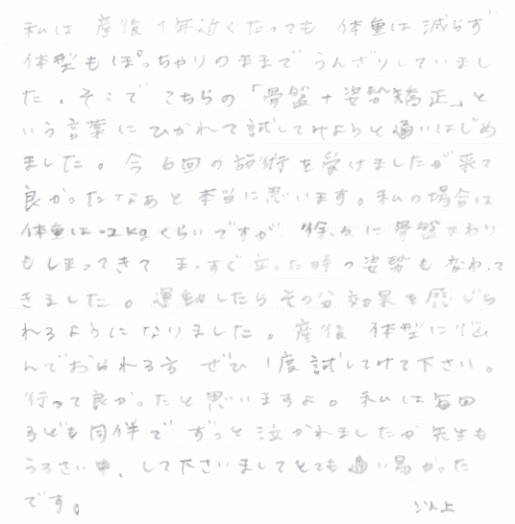 私は 産後1年近くたっても 体重は減らず
体型もぽっちゃりのままで うんざりしていまし
た。そこで こちらの「骨盤+姿勢矯正」と
いう言葉に ひかれて試してみようと通いはじめ
ました。今 6回の施術を受けましたが来て
良かったなぁと 本当に思います。私の場合は
体重は-2kgくらいですが、徐々に骨盤まわり
もしまってきて まっすぐ立った時の姿勢も 変わって
きました。運動したらその分効果を感じら
れるようになりました。産後 体型に悩
んでおられる方 ぜひ 1度試してみて下さい。
行って良かったと思いますよ。私は毎回
子ども同伴で ずっと泣かれましたが先生も
うるさい中、して下さいましてとても通い易かった
です。 以上